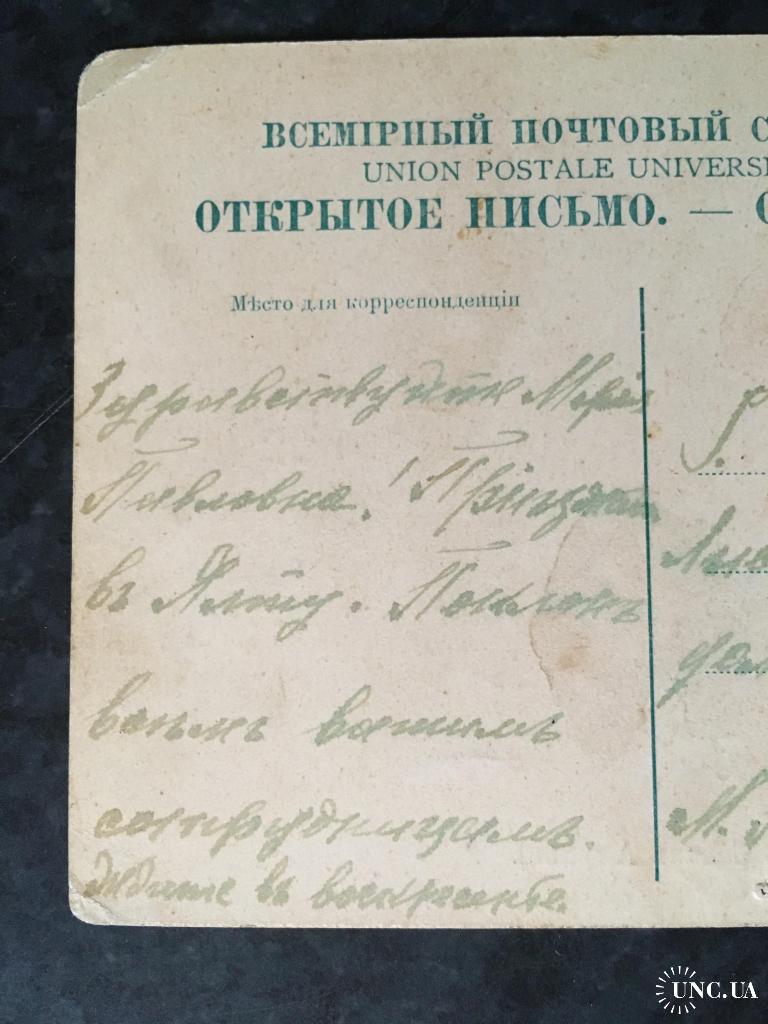 ВСЕМІРНЫЙ ПОЧТОВЫЙ С
UNION POSTALE UNIVERS
ОТКРЫТОЕ ПИСЬМО. —
Мѣсто для корреспонденціи
Здравствуйте Марія
Павловна!
въ Ялту. Поклонъ
всѣмъ вашимъ
сотрудницамъ.
въ воскресенье.
М.
UNC.UA